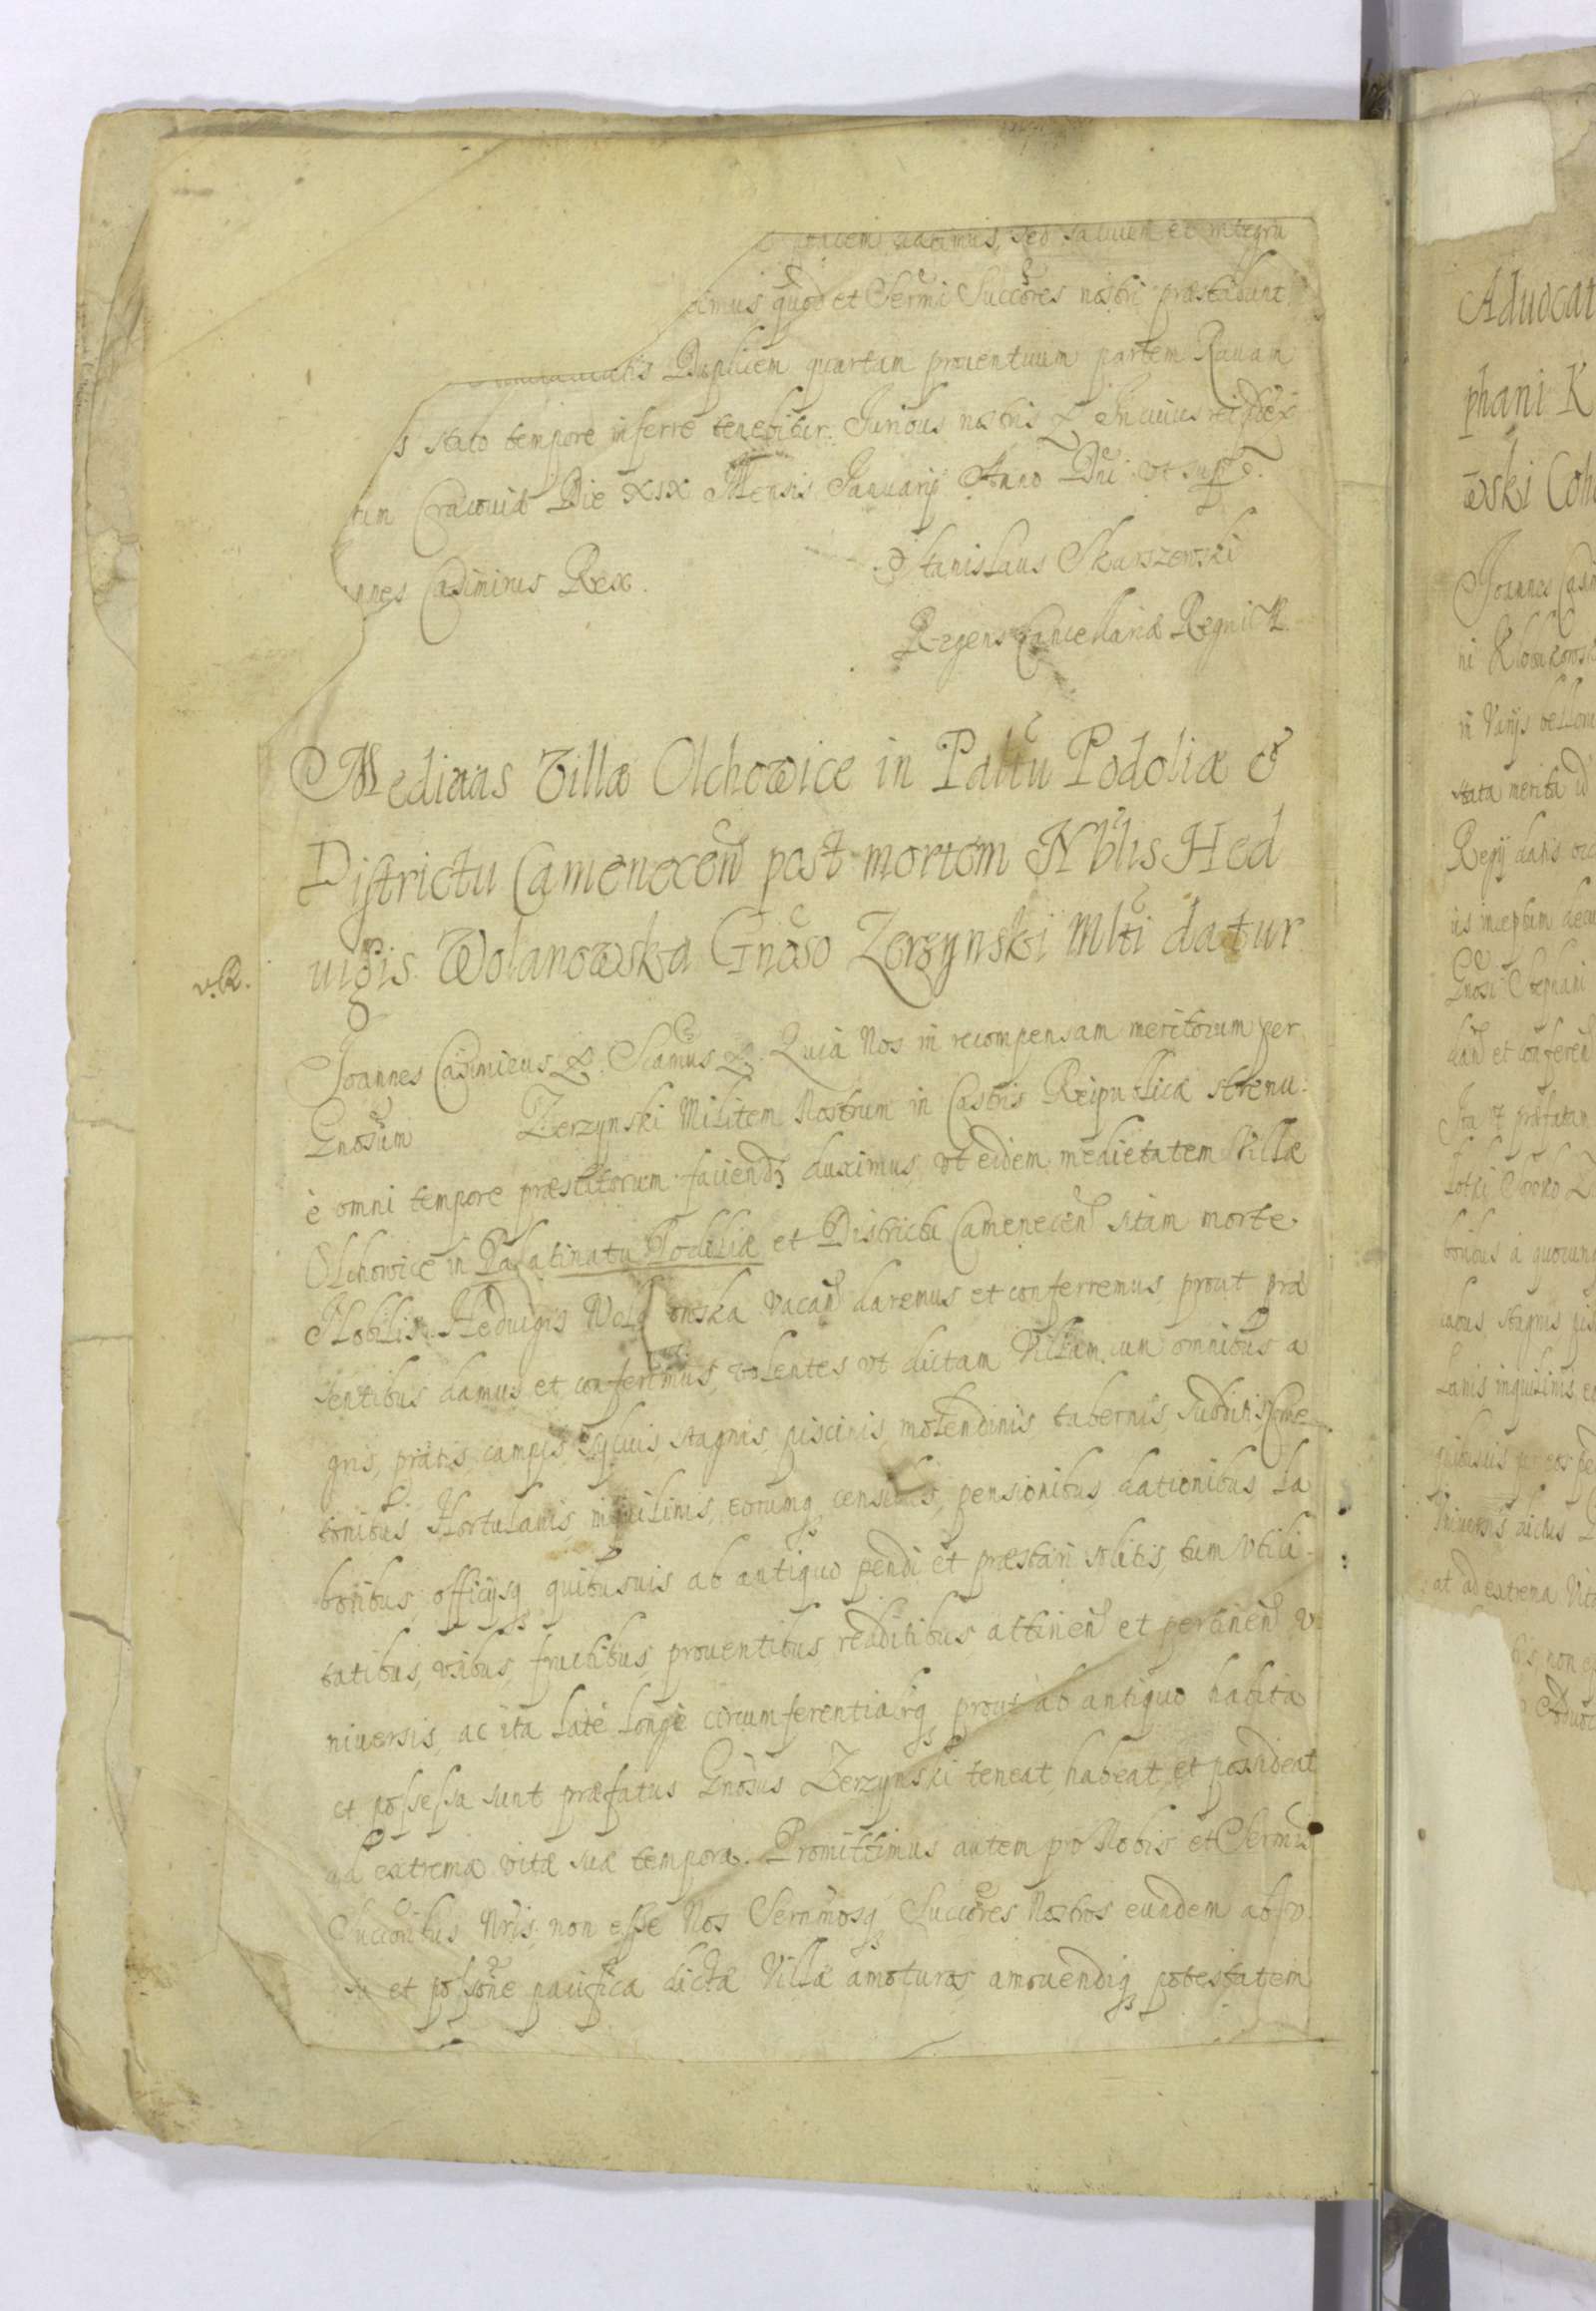 daturos, sed saluum et integrū
imus, quod et Sermi Succōres nostri præstabunt.
Duplicem quartam prouentuum partem Rauam
s stato tempore inferre tenebitur. Iuribus nostris & In cuius rei
tum Cracouiæ Die XIX Mensis Ianuarij Anno Dni vt supr.
nnes Casimirus Rex.
Stanislaus Skarszewski
Regens Cancellariæ Regni
Medietas Villæ Olchowice in Paltu Podoliæ &
Districtu Camenecen post mortem Nblis Hed
uigis Wolanowska Gnoso Zerzynski Mlti datur
v. R.
Joannes Casimirus & Scamus &. Quia Nos in recompensam meritorum per
Gnosum Zerzynski Militem Nostrum in Castris Reipublicæ strenu:
è omni tempore præstitorum faciend duximus, vt eidem medietatem Villæ
Olchowice in Palatinatu Podoliæ et Districtu Camenecen sitam morte
Nobilis Heduigis Wola onska vacan daremus et conferremus, prout præ
sentibus damus et conferimus, volentes vt dictam Villam cum omnibus a
gris, pratis, campis, syluis, stagnis, piscinis, molendinis tabernis, subditis, Cme
tonibus, Hortulanis, inquilinis, eorumq censibus, pensionibus dationibus la
boribus, officijsq quibusuis ab antiquo pendi et præstari solitis, tum vtili
tatibus, vsibus, fructibus, prouentibus, redditibus attinen et pertinen v
niuersis, ac ita latè longè circumferentialrq prout ab antiquo habita
et possessa sunt præfatus Gnosus Zerzynski teneat habeat et possideat
ad extrema vitæ suæ tempora. Promittimus autem pro Nobis et Sermis
Succoribus Nris, non esse Nos Sernmosq Succores Nostros eundem ab v
su et possone pacifica dictæ Villæ amoturos amouendiq potestatem
Aduocat
phani K
wski Coh
Joannes Casim
ni Klobukowsk
in Varijs bellor
stata merita
Regij
Gnosi Stephani
dan et conferen
Ita vt præfatan
lanis inquilinis, e
at ad extrema vit